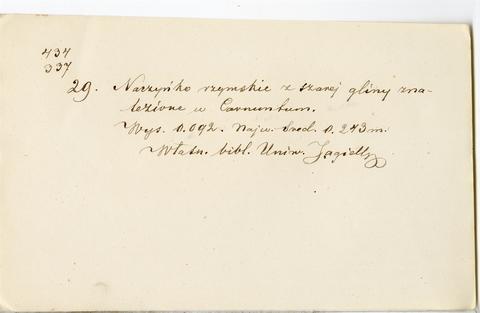 434
337
29. Naczyńko rzymskie z szarej gliny zna-
lezione w Carnuntum.
Wys. 0.092. Najw. śred. 0.243 m.
Własn. bibl. Uniw. Jagiell.